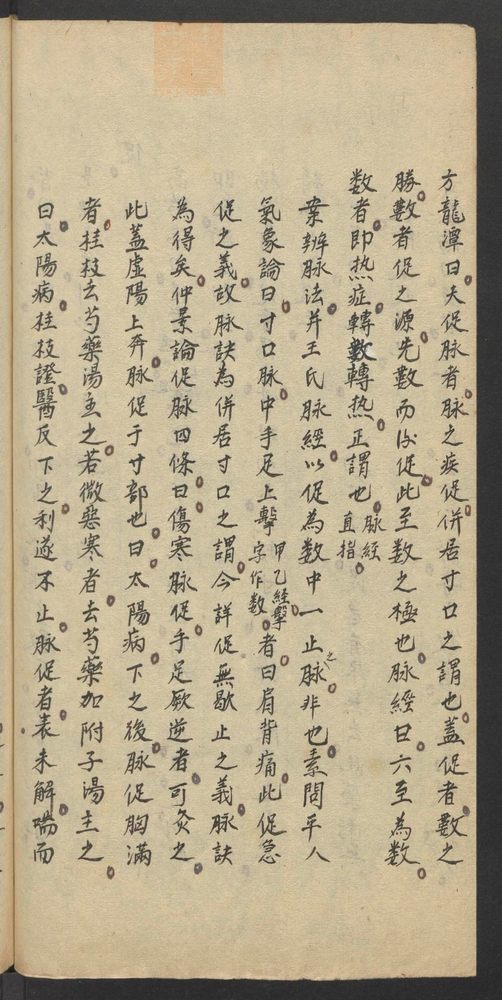 方龍潭曰夫促脉者脉之疾促併居寸口之謂也盖促者數之
勝數者促之源先數而後促此至数之極也脉經曰六至為数
数者即热症轉數轉热正謂也脉經直指
案辨脉法并王氏脉經以促為数中一止之脉非也素問平人
氣象論曰寸口脉中手足上擊甲乙經擊字作数者曰肩背痛此促急
促之義故脉訣為併居寸口之謂今詳促無歇止之義脉訣
為得矣仲景論促脉四條曰傷寒脉促手足厥逆者可灸之
此盖虛陽上奔脉促于寸部也曰太陽病下之後脉促胸滿
者桂枝去芍藥湯主之若微惡寒者去芍藥加附子湯主之
曰太陽病桂枝證醫反下之利遂不止脉促者表未解喘而